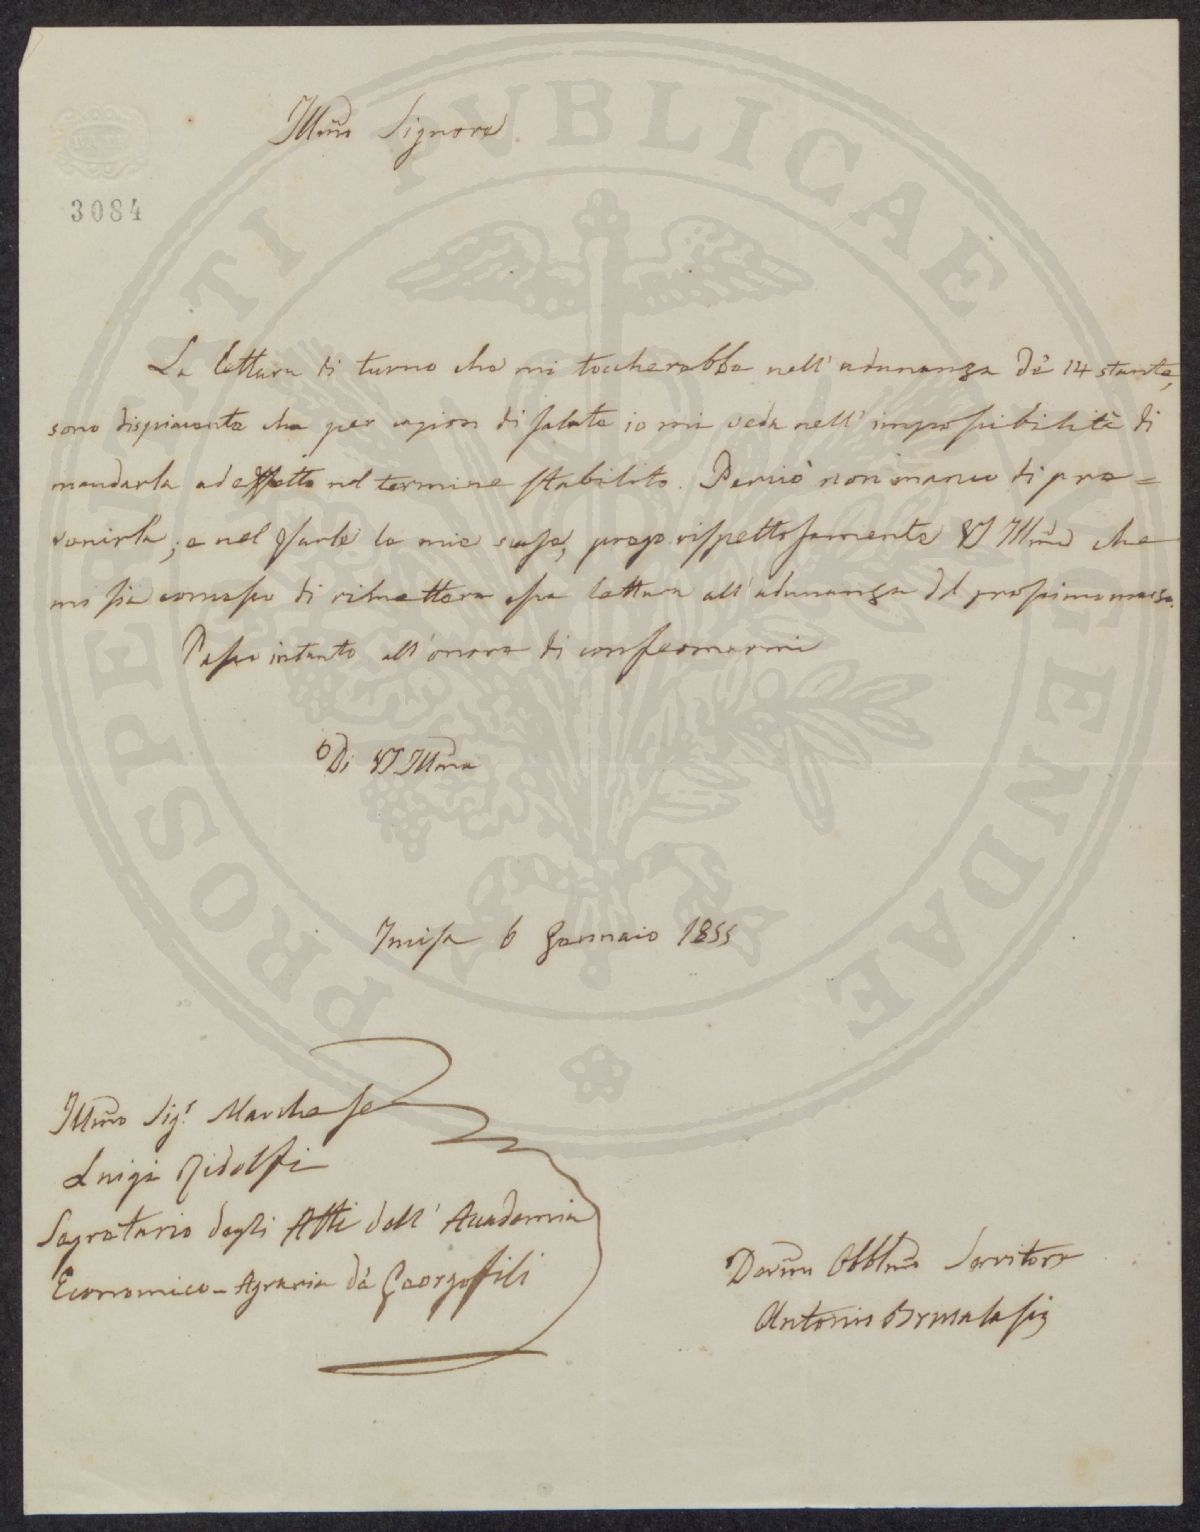 Illmo Signore
3084
La lettura di turno che mi toccherebbe nell'adunanza de' 14 stante,
sono dispiacente che per ragion di salute io mi veda nell'impossibilità di
mandarla ad effetto nel termine stabilito. Perciò non manco di pre=
venirla, e nel farle le mie scuse, prego rispettosamente VS Illma che
mi sia concesso di rimettere essa lettura all'adunanza del prossimo marzo.
Passo intanto all'onore di confermarmi
Di VS Illma
Incisa 6 Gennaio 1855
Illmo Sigr Marchese
Luigi Ridolfi
Segretario degli Atti dell'Accademia
Economico-Agraria de' Georgofili
Devmo Obblmo Servitore
Antonio
PROSPERITATI PUBLICAE AUGENDAE